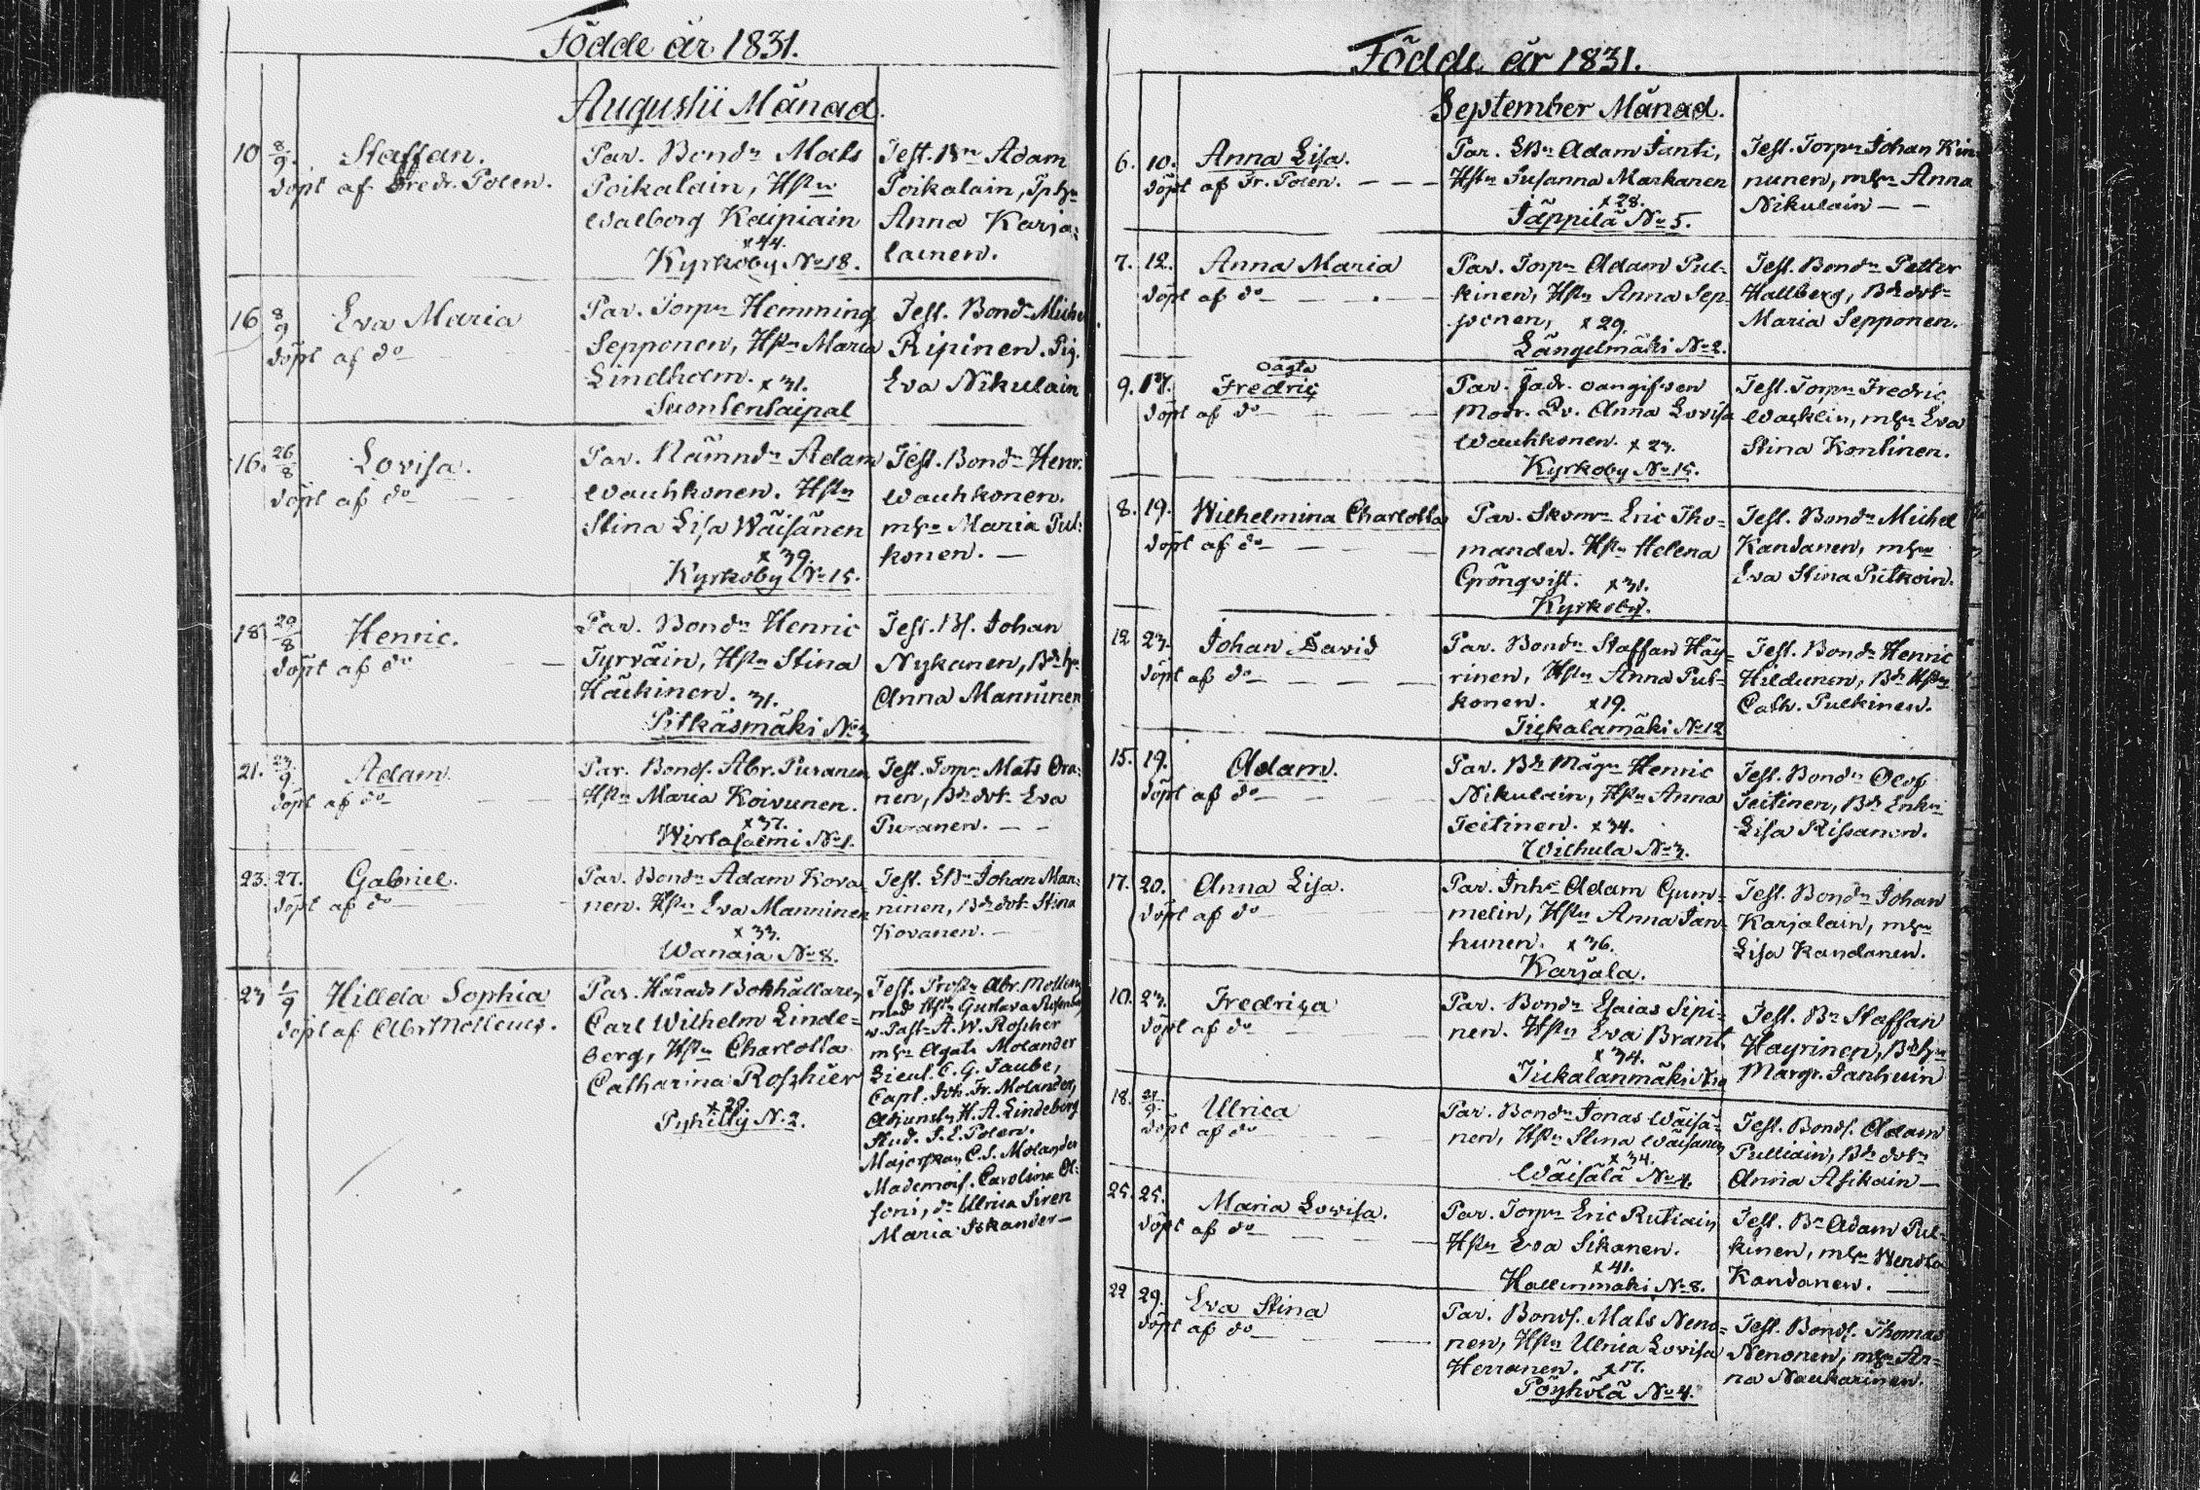 Födde år 1831.
Augustii Månad.
10 8/9. Staffan.
döpt af Fredr. Polen.
Par. Bondn Mats
Poikalain, Hstn
Walborg Kaipiain
x 44.
Kyrkoby No 18.
Test. Bn Adam
Poikalain,
Anna Karja-
lainen.
16 8/9 Eva Maria
döpt af do
Par. Torpn Hemming
Sepponen, Hstn Maria
Lindholm. x 31.
Suontensaipal
Test. Bondn Michel
Ripinen. Pig.
Eva Nikulain
16. 26/8 Lovisa.
döpt af do
Par. Nämndn Adam
Wauhkonen. Hstn
Stina Lisa Wäisänen
x 39.
Kyrkoby No 15.
Test. Bondn Henr.
Wauhkonen.
mhn Maria Pul-
konen. —
18. 29/8 Henric.
döpt af do
Par. Bondn Henric
Tyrväin, Hstn Stina
Häkinen. 31.
Pitkäsmäki No 3
Test. Bs. Johan
Nykanen,
Anna Manninen
21. 23/9 Adam.
döpt af do
Par. Bonds. Abr. Puranen
Hstn Maria Koivunen.
x 37.
Wirtasalmi No 1.
Test. Torpn Mats Ora-
nen, Bdedotr Eva
Puranen. — —
23. 27. Gabriel.
döpt af do
Par. Bondn Adam Kova-
nen. Hstn Eva Manninen
x 33.
Wanaja No 8.
Test. Johan Man-
ninen, Bdedotr Stina
Kovanen. —
23 1/9 Hillda Sophia
döpt af Abr Molleus.
Par. Härads Bokhållaren
Carl Wilhelm Linde-
berg, Hstn Charlotta
Catharina Roschier
x 29.
Pyhilty N. 2.
Test. Prostn Abr. Molleus
med Hstn Gustava
v. Past. A. W. Roschier
mhn Agata Molander
Lieut. C. G. Taube,
Capt. Joh. Fr. Molander,
Adjunctn H. A. Lindeberg
Stud. J. E. Polen.
Majorskan C. S. Molander
Mademois. Carolina Al-
foni, do Ulrica Siren
Maria Iskander —
Födde år 1831.
September Månad.
6. 10. Anna Lisa.
döpt af Fr. Polen. — — —
Par. Adam Janti,
Hstn Susanna Markanen
x 28.
Jäppilä No 5.
Test. Torpn Johan Kin-
nunen, mhn Anna
Nikulain — —
7. 12. Anna Maria
döpt af do
Par. Torpn Adam Pul-
kinen, Hstn Anna Sep-
ponen, x 29.
Längelmäki No 2.
Test. Bondn Petter
Hallberg, Bdedotr
Maria Sepponen.
9. 17. Oägta
Fredric
döpt af do
Par. Fadr. oangifven
Modr. Anna Lovisa
Wauhkonen. x 23.
Kyrkoby No 15.
Test. Torpn Fredric
Wacklin, mhn Eva
Stina Kontinen.
8. 19. Wilhelmina Charlotta
döpt af do
Par. Skomn Eric Tho-
mander. Hstn Helena
Grönqvist. x 31.
Kyrkoby.
Test. Bondn Michel
Kandanen, mhn
Eva Stina Putkoin.
12 23. Johan David
döpt af do
Par. Bondn Staffan Häy-
rinen, Hstn Anna Pul-
konen. x 19.
Tiekalamäki No 12
Test. Bondn Henric
Hildunen, Bde Hstn
Cath. Pulkinen.
15. 19. Adam.
döpt af do
Par. Bde Mågn Henric
Nikulain, Hstn Anna
Teitinen. x 34.
Wilhula No 3.
Test. Bondn Olof
Teitinen, Bde Enkn
Lisa Rissanen.
17. 20. Anna Lisa.
döpt af do
Par. Inhs Adam Gum-
melin, Hstn Anna Jan-
hunen. x 36.
Karjala.
Test. Bondn Johan
Karjalain, mhn
Lisa Kandanen.
10. 23. Fredrica
döpt af do
Par. Bondn Esaias Sipi-
nen. Hstn Eva Brant
x 34.
Tiekalanmäki No 10
Test. Bn Staffan
Hayrinen,
Margr. Janhuin
18. 21/9. Ulrica
döpt af do
Par. Bondn Jonas Wäisä-
nen, Hstn Stina Wäisänen
x 34.
Wäisälä No 4.
Test. Bonds. Adam
Pulliain, Bde dotr
Anna Asikain —
25. 25. Maria Lovisa.
döpt af do
Par. Torpn Eric Rutiain,
Hstn Eva Sikanen.
x 41.
Hallinmäki No 8.
Test. Bn Adam Pul-
kinen, mhn Wendla
Kandanen. —
22 29. Eva Stina
döpt af do
Par. Bonds. Mats Neno-
nen, Hstn Ulrica Lovisa
Herranen. x 17.
Pöyhölä No 4.
Test. Bonds. Thomas
Nenonen, mhn An-
na Naukarinen.